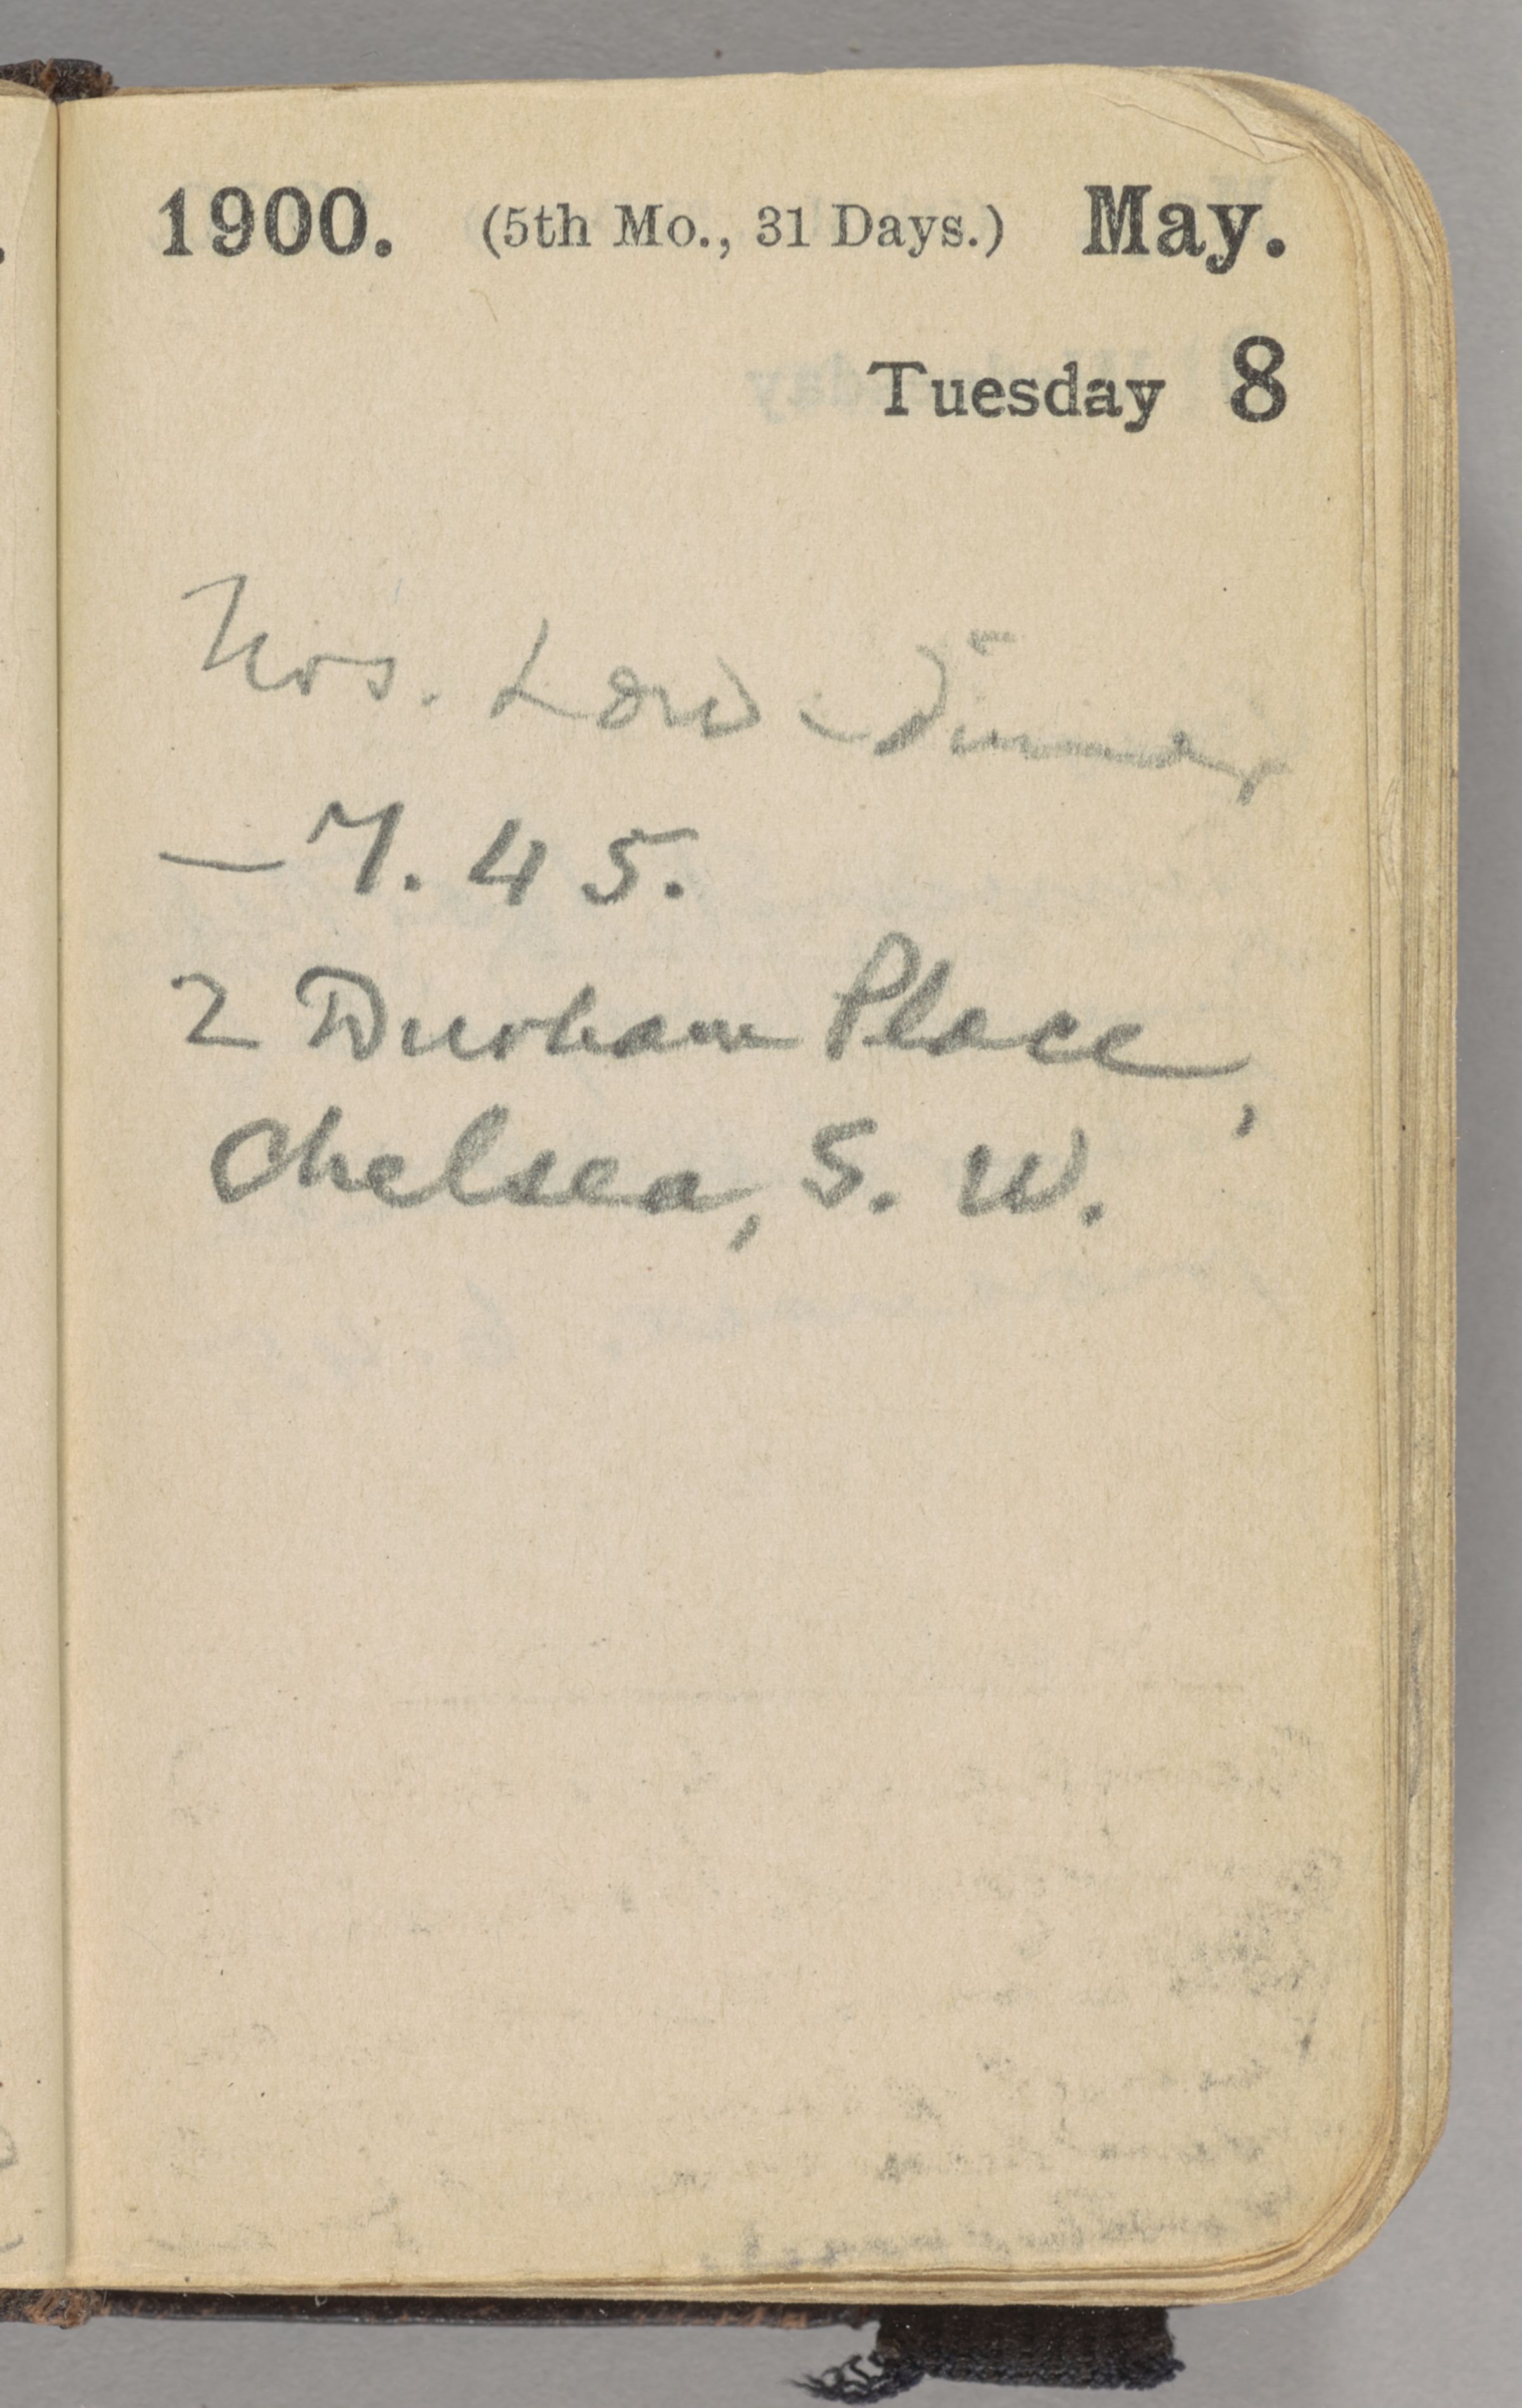 1900. (5th Mo., 31 Days.) May.
Tuesday 8
Mrs. Low - Dinner
— 7.45.
2 Durham Place,
Chelsea, S. W.